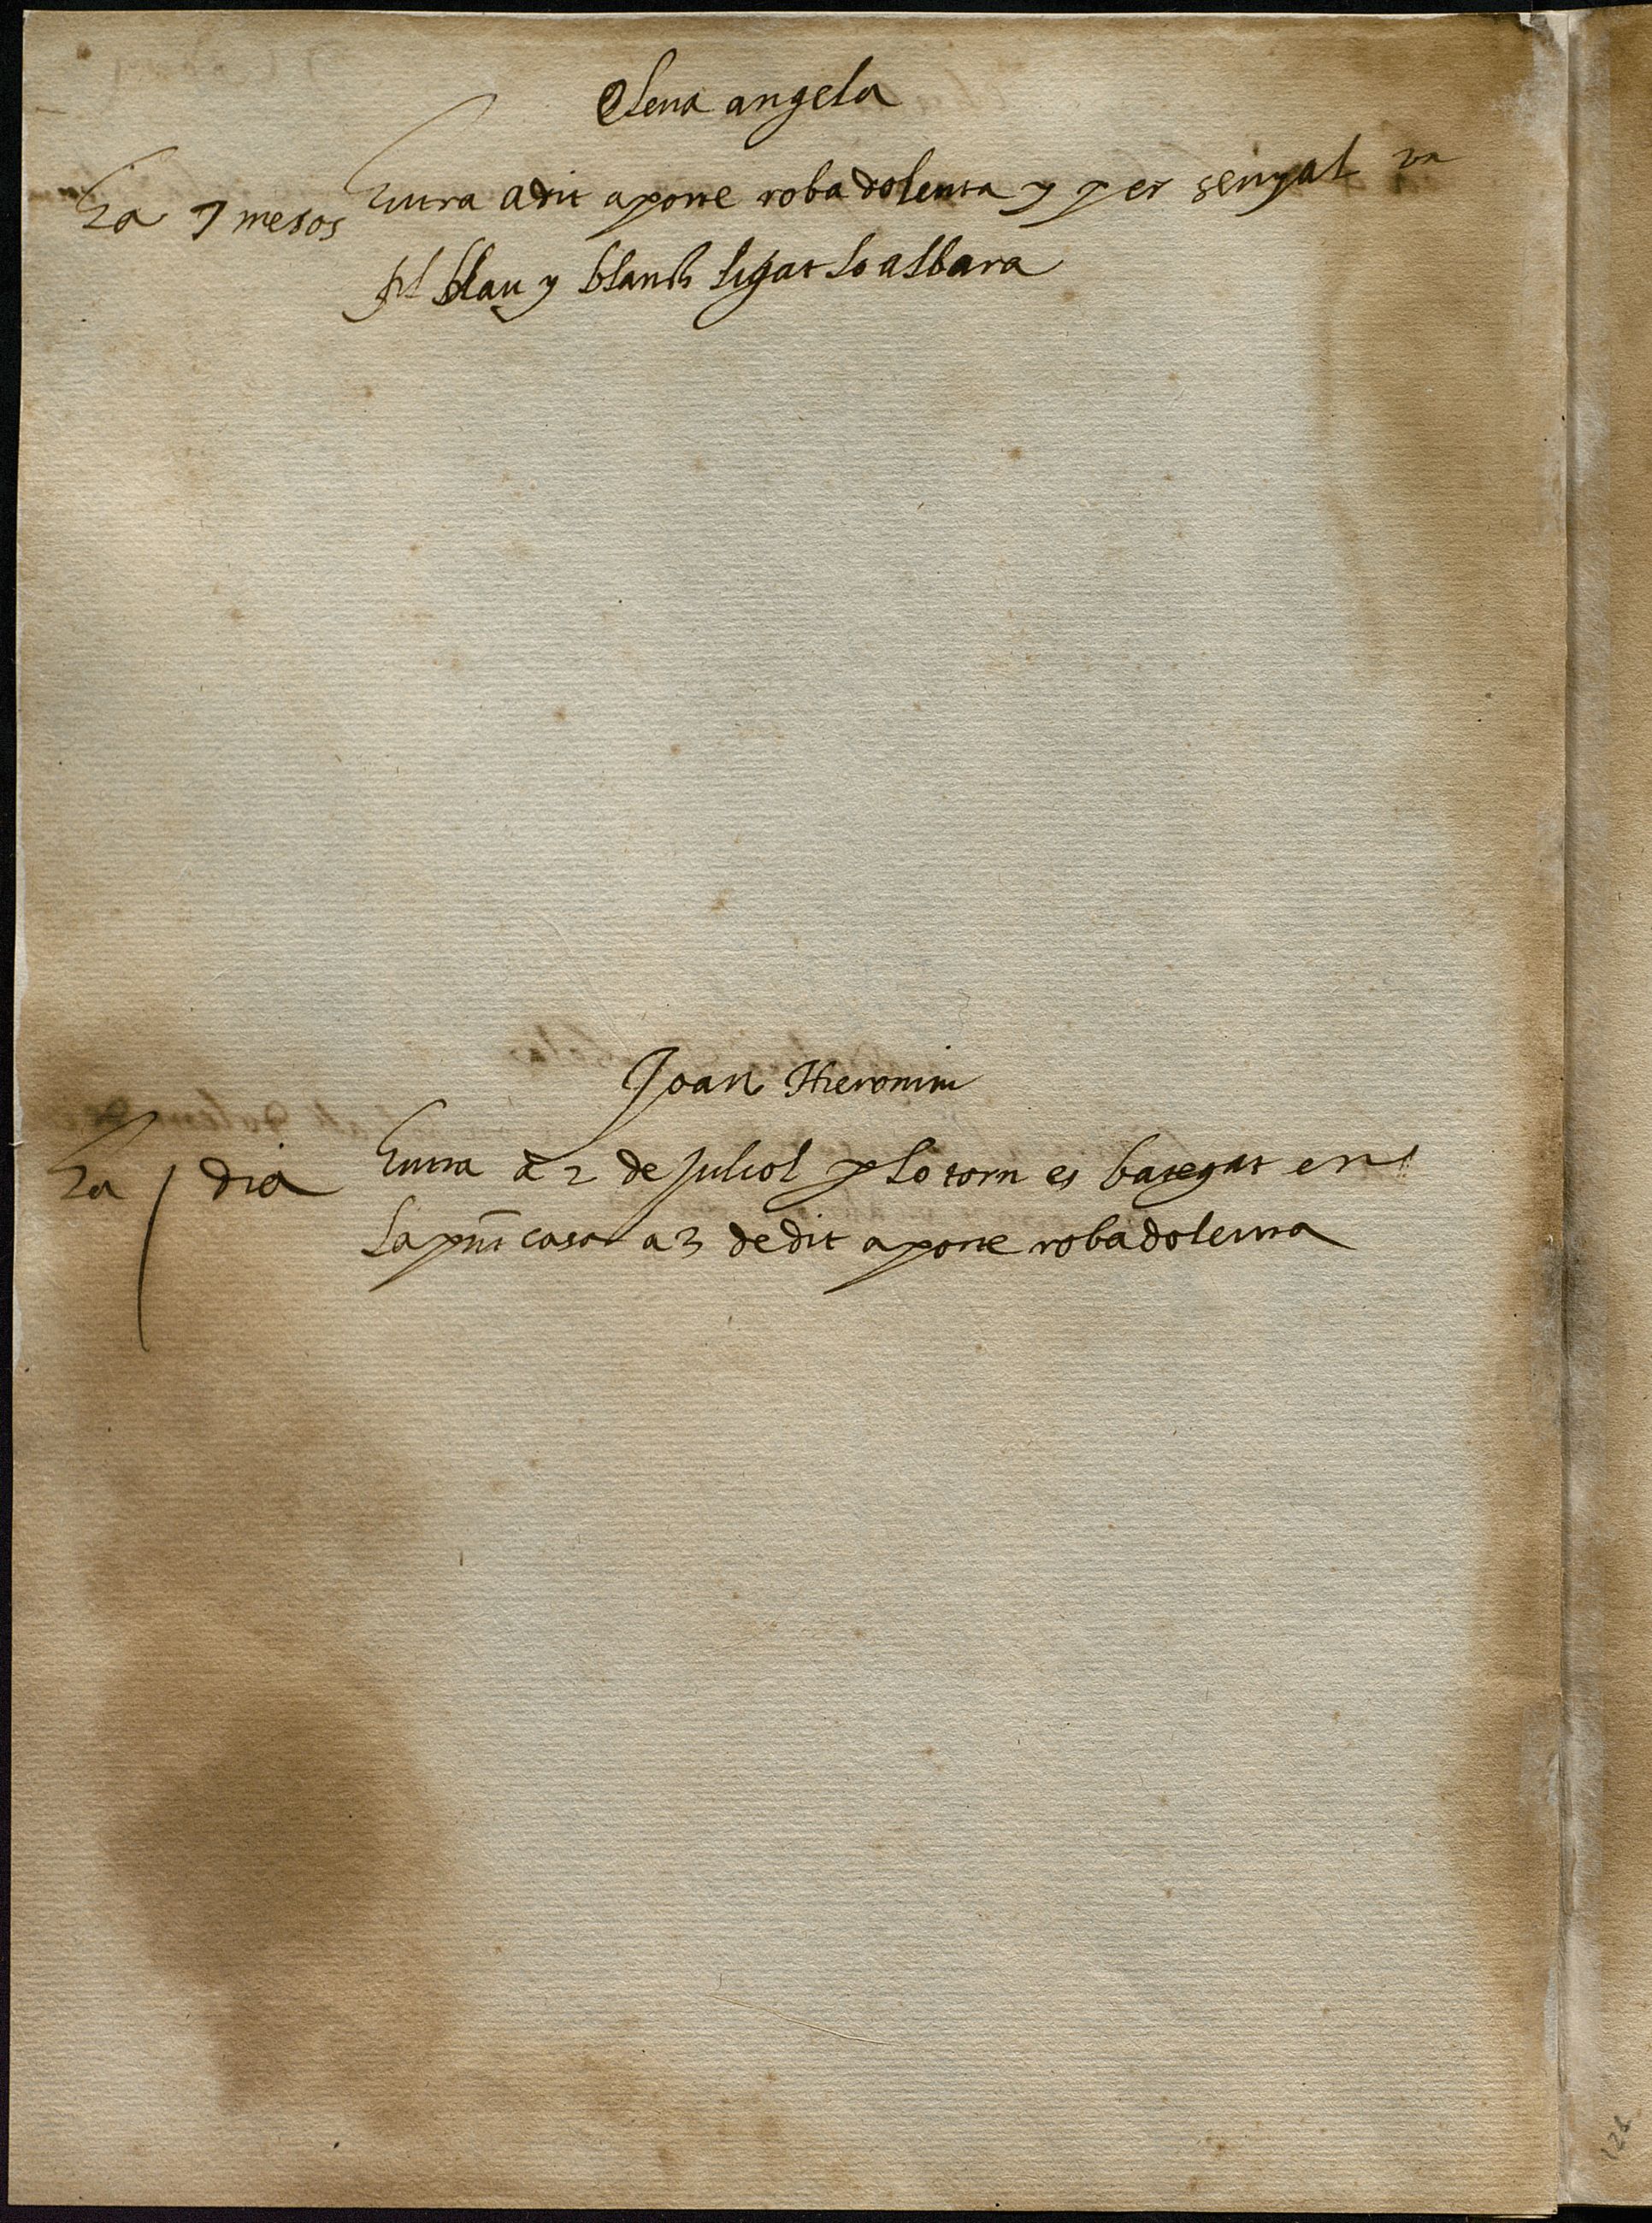 Elena angela
Ha 7 mesos
Entra a dit aporte roba dolenta y per senyal un
fil blau y blanch ligat lo albara
Joan Hieronim
Ha 1 dia
Entra a 2 de Juliol p lo torn es bategat en
la pnt casa a 3 de dit aporte roba dolenta
128